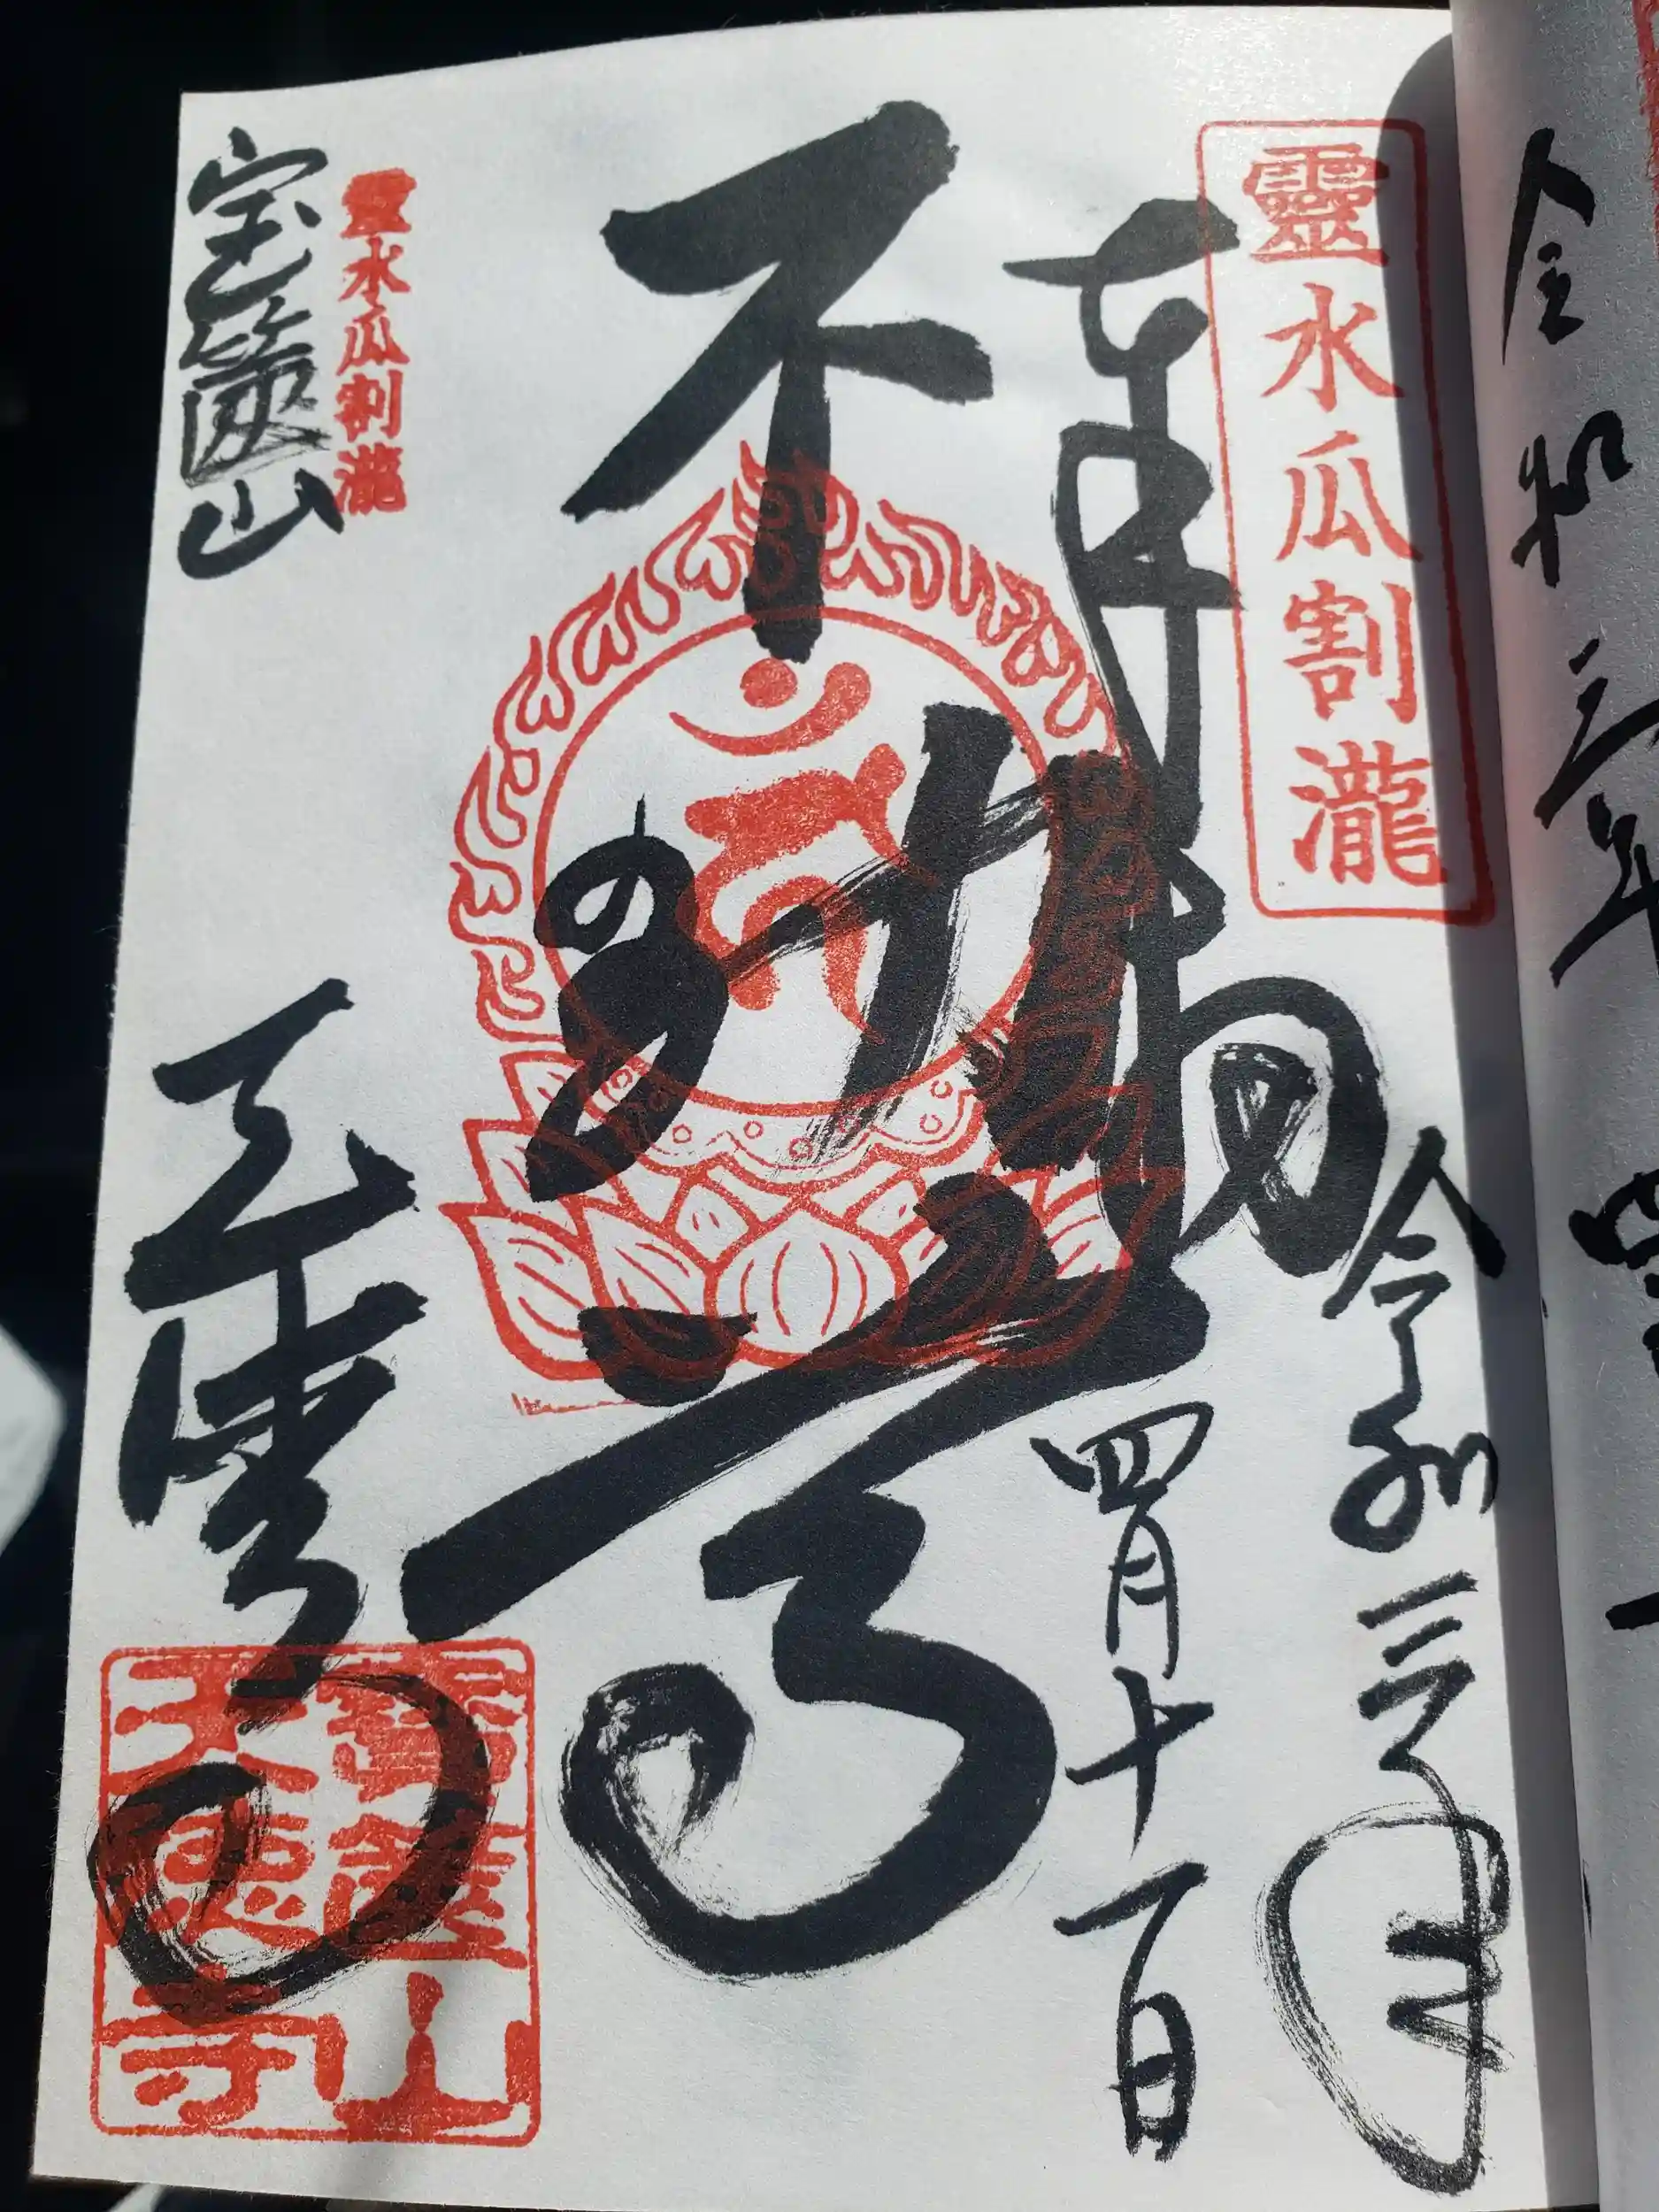 令和三年四
靈水瓜割瀧
奉拝
令和三年
四月十一日
不動尊
靈水瓜割瀧
宝篋山
天徳寺
寶篋山
天德寺